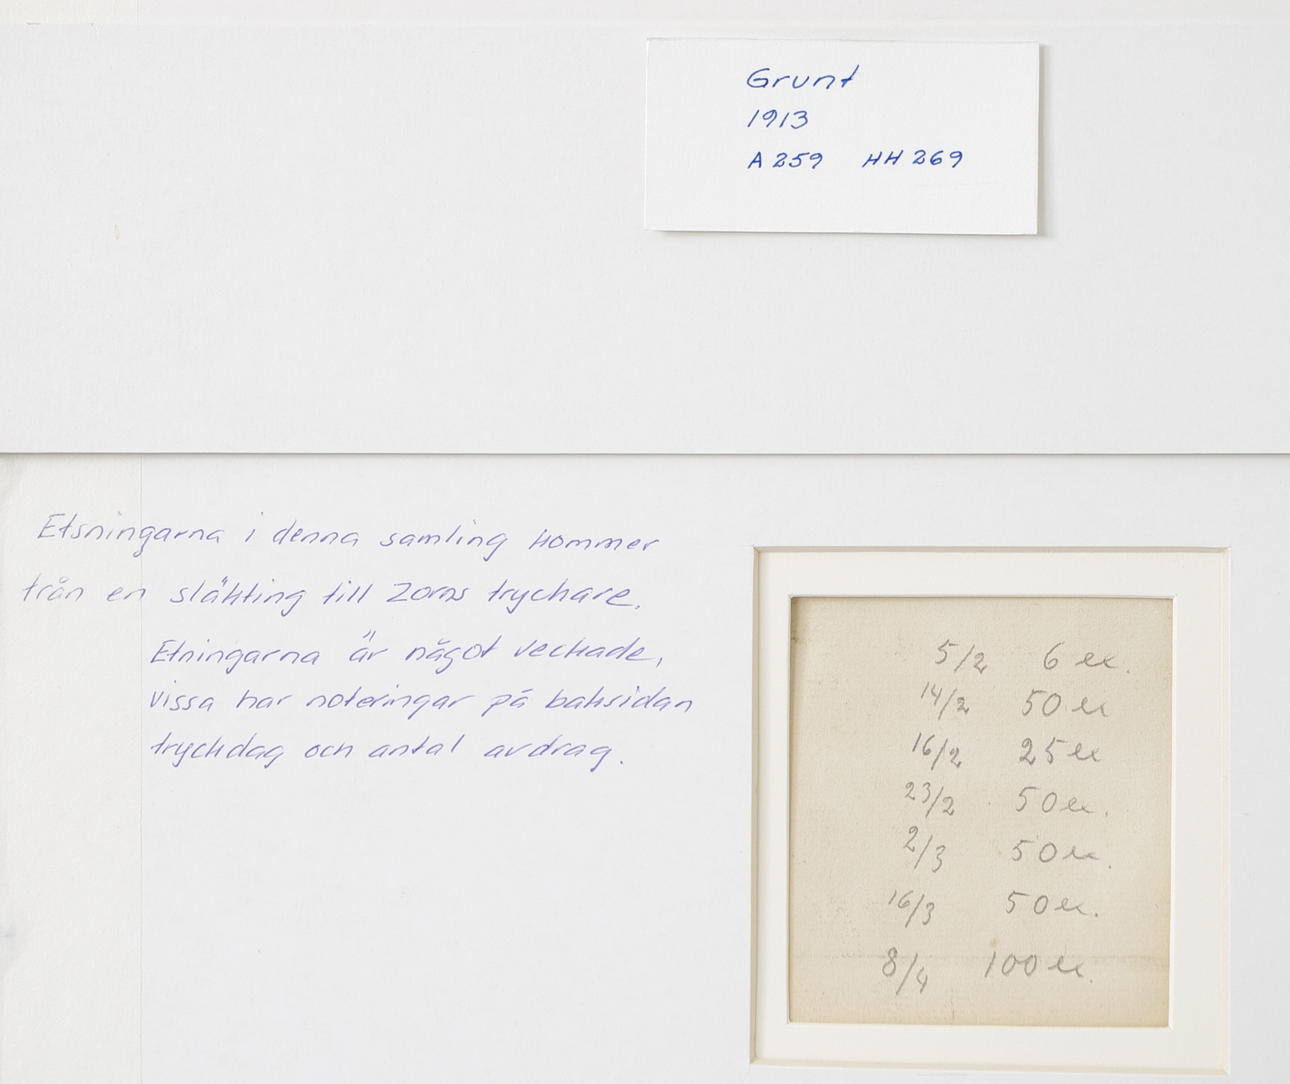 Grunt
1913
A 259 HH 269
Etsningarna i denna samling kommer
från en släkting till Zorns tryckare.
Etningarna är något veckade,
vissa har noteringar på baksidan
tryckdag och antal avdrag.
5/2 6 ex.
14/2 50 ex
16/2 25 ex
23/2 50 ex.
2/3 50 ex.
16/3 50 ex.
8/4 100 ex.